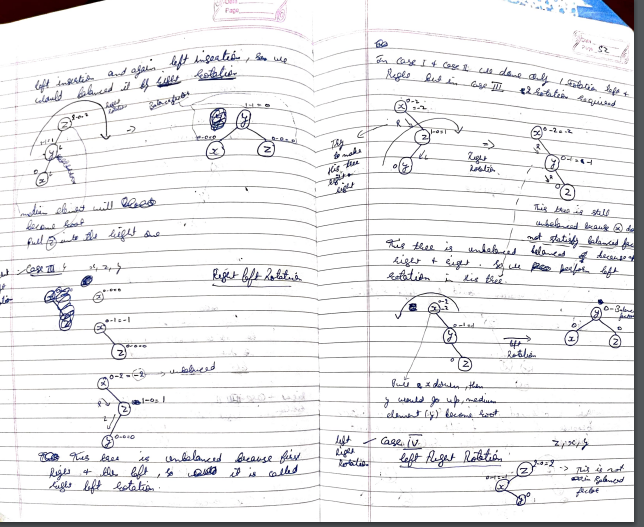 Page
left insertion and again left insertion, so we
would balanced it by right Rotation
Right
Rotation
Balance factor
2-0=2
1-1=0
z
y
=>
y
0-0=0
0-0=0
x
x
z
median element will
become root
Pull z into the right one
Case III
x, z, y
Right left Rotation
x 0-0=0
x 0-1=-1
z 0-0=0
x 0-2=-2 -> unbalanced
R
z 1-0=1
L
y 0-0=0
This tree is unbalanced because first
Right & the left, so it is called
right left rotation.
Page 52
In Case I & Case II we done only 1 rotation left &
Right but in case III, 2 rotation required
0-2
=-2
x
R
z 1-0=1
L
0 y
Try
to make
this tree
right
right
=>
Right
Rotation
x 0-2=-2
R
y 0-1=-1
R
0 z
This tree is still
unbalanced because x
not satisfy balanced
This tree is unbalanced because of
right & right. So we perform left
rotation in his tree.
x
y 0-1=-1
z
left
Rotation
y
x
z
Pull x down, then
y would go up, medium
element (y) become root
left
Right
Rotation
Case IV
z, x, y
left Right Rotation
z 2-0=2 -> This is not
in Balanced
factor
x
y 0